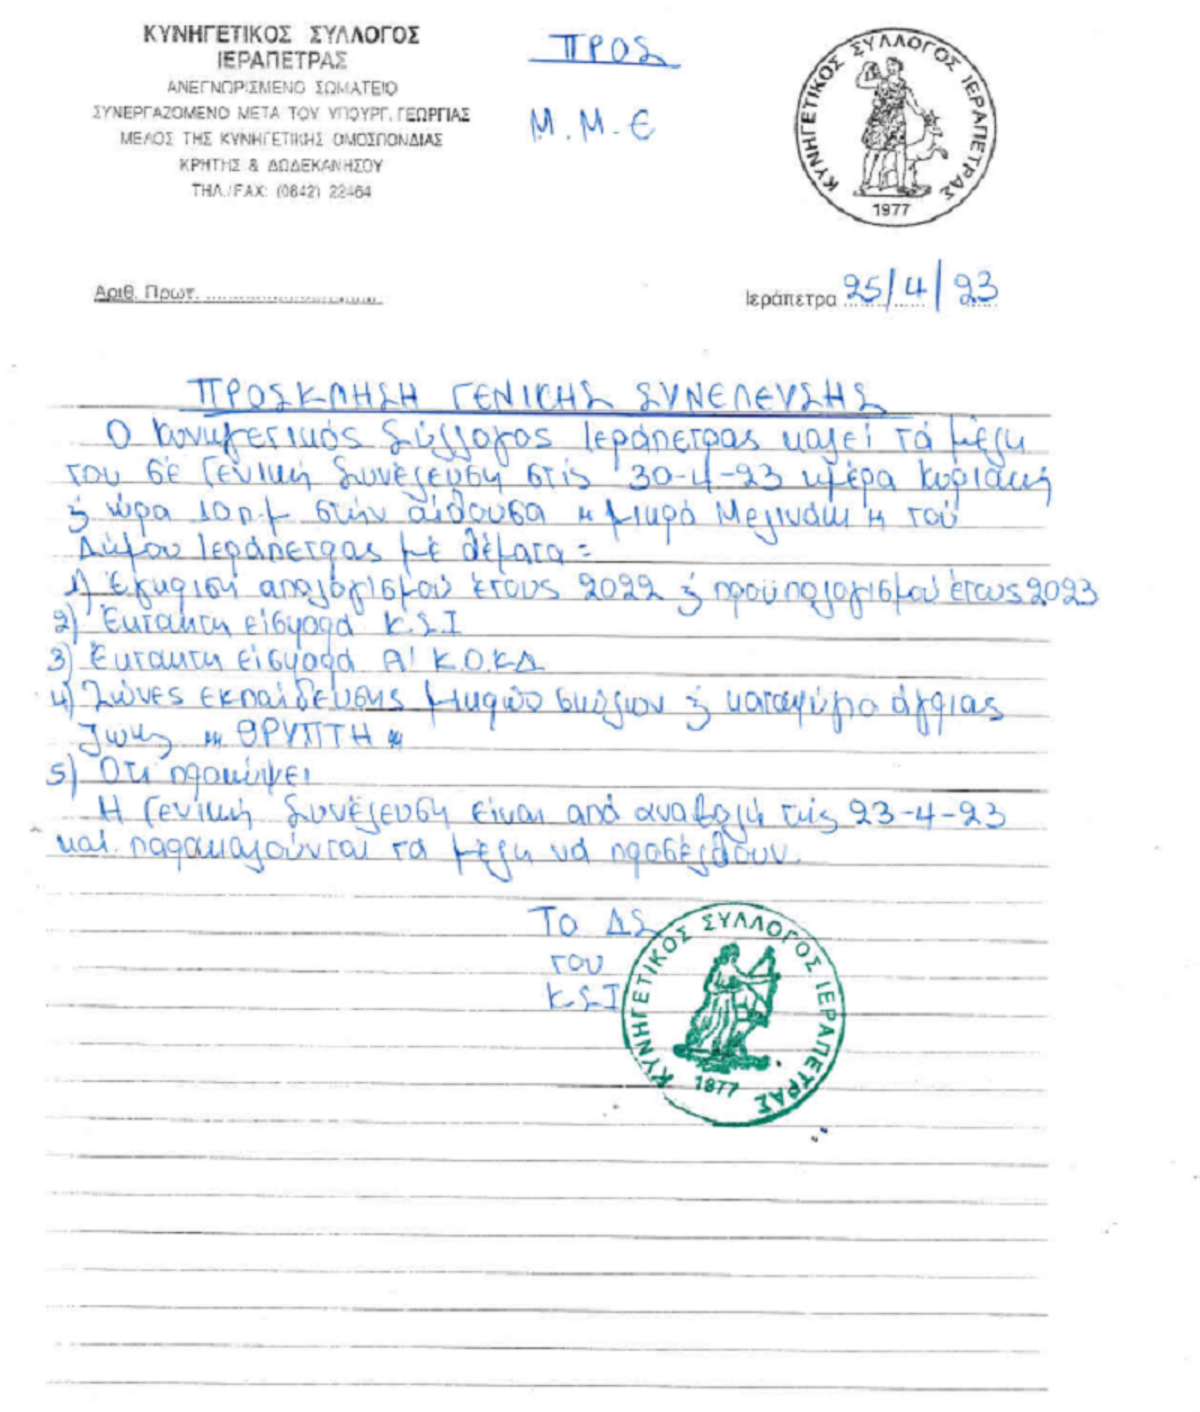 ΚΥΝΗΓΕΤΙΚΟΣ ΣΥΛΛΟΓΟΣ
ΙΕΡΑΠΕΤΡΑΣ
ΑΝΕΓΝΩΡΙΣΜΕΝΟ ΣΩΜΑΤΕΙΟ
ΣΥΝΕΡΓΑΖΟΜΕΝΟ ΜΕΤΑ ΤΟΥ ΥΠΟΥΡΓ. ΓΕΩΡΓΙΑΣ
ΜΕΛΟΣ ΤΗΣ ΚΥΝΗΓΕΤΙΚΗΣ ΟΜΟΣΠΟΝΔΙΑΣ
ΚΡΗΤΗΣ & ΔΩΔΕΚΑΝΗΣΟΥ
ΤΗΛ./FAX: (0842) 22464
ΠΡΟΣ
Μ.Μ.Ε
ΚΥΝΗΓΕΤΙΚΟΣ ΣΥΛΛΟΓΟΣ ΙΕΡΑΠΕΤΡΑΣ
1977
Αριθ. Πρωτ.
Ιεράπετρα 25/4/23
ΠΡΟΣΚΛΗΣΗ ΓΕΝΙΚΗΣ ΣΥΝΕΛΕΥΣΗΣ
Ο Κυνηγετικός Σύλλογος Ιεράπετρας καλεί τά μέλη
του σέ Γενική Συνέλευση στίς 30-4-23 ημέρα Κυριακή
ξ ώρα 10 π.μ στήν αίθουσα " μικρό Μελινάκι " τού
Δήμου Ιεράπετρας μέ θέματα =
1) Έγκριση απολογισμού έτους 2022 ξ προϋπολογισμού έτους 2023
2) Έκτακτη εισφορά Κ.Σ.Ι
3) Έκτακτη εισφορά Α' Κ.Ο.Κ.Δ
4) Ζώνες εκπαίδευσης σκύλων ξ καταφύγιο άγριας
ζωής " ΘΡΥΠΤΗ "
5) Οτι προκύψει
Η Γενική Συνέλευση είναι από αναβολή τής 23-4-23
καί παρακαλούνται τα μέλη νά προσέλθουν.
Το ΔΣ
του
Κ.Σ.Ι
ΚΥΝΗΓΕΤΙΚΟΣ ΣΥΛΛΟΓΟΣ ΙΕΡΑΠΕΤΡΑΣ
1977